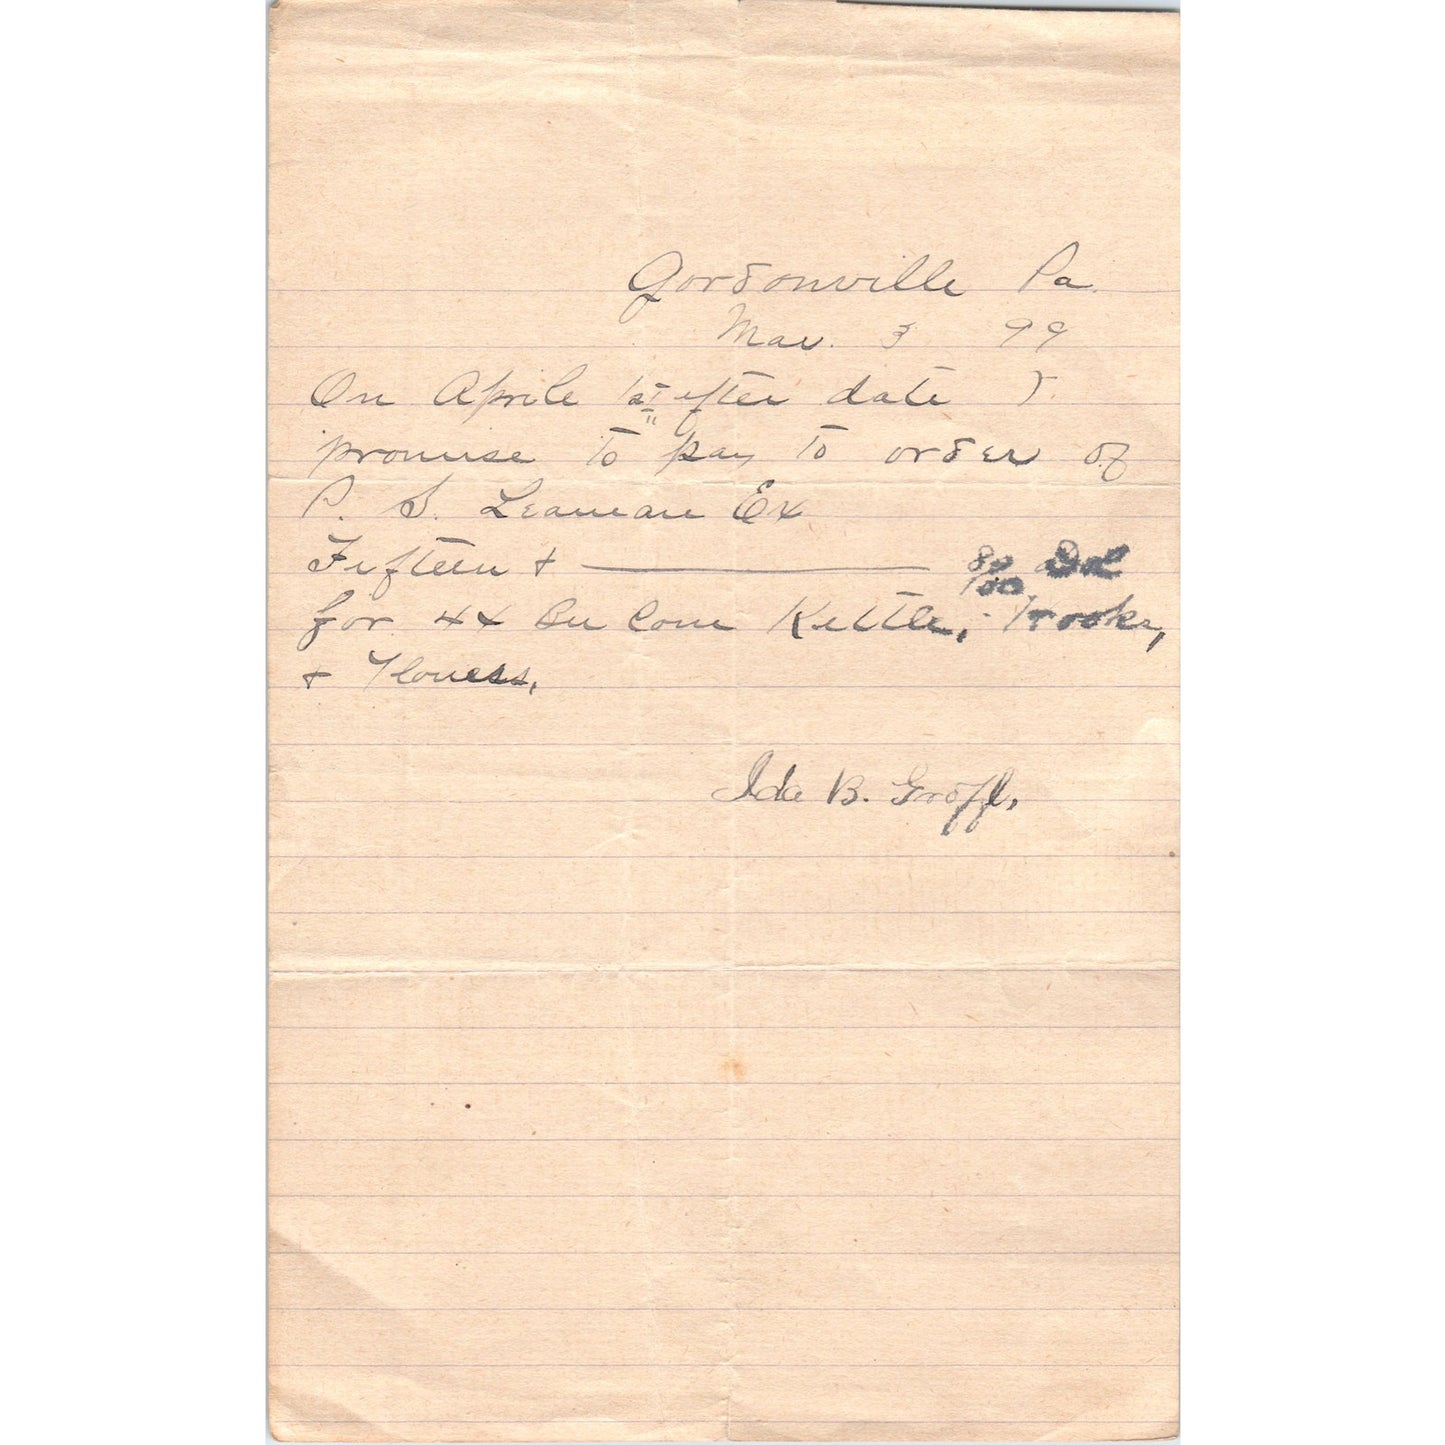 Gordonville Pa.
Mar. 3 99
On Aprile 1st after date I
promise to pay to order of
P. S. Leaman Ex
Fifteen + —— 80/100 Dol
for 44 Bu Corn Kettle,
+
Ida B. Groff.